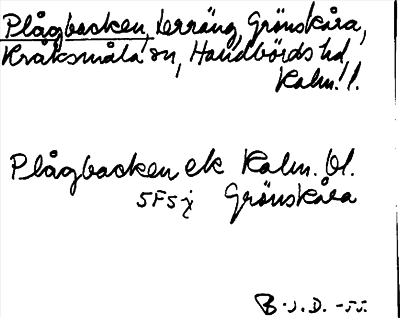 Plågbacken, terräng, Grönskåra,
Kråksmåla sn, Handbörds hd,
Kalm. l.
Plågbacken ek Kalm. bl.
5F5j Grönskåra
B.J.D. -55.